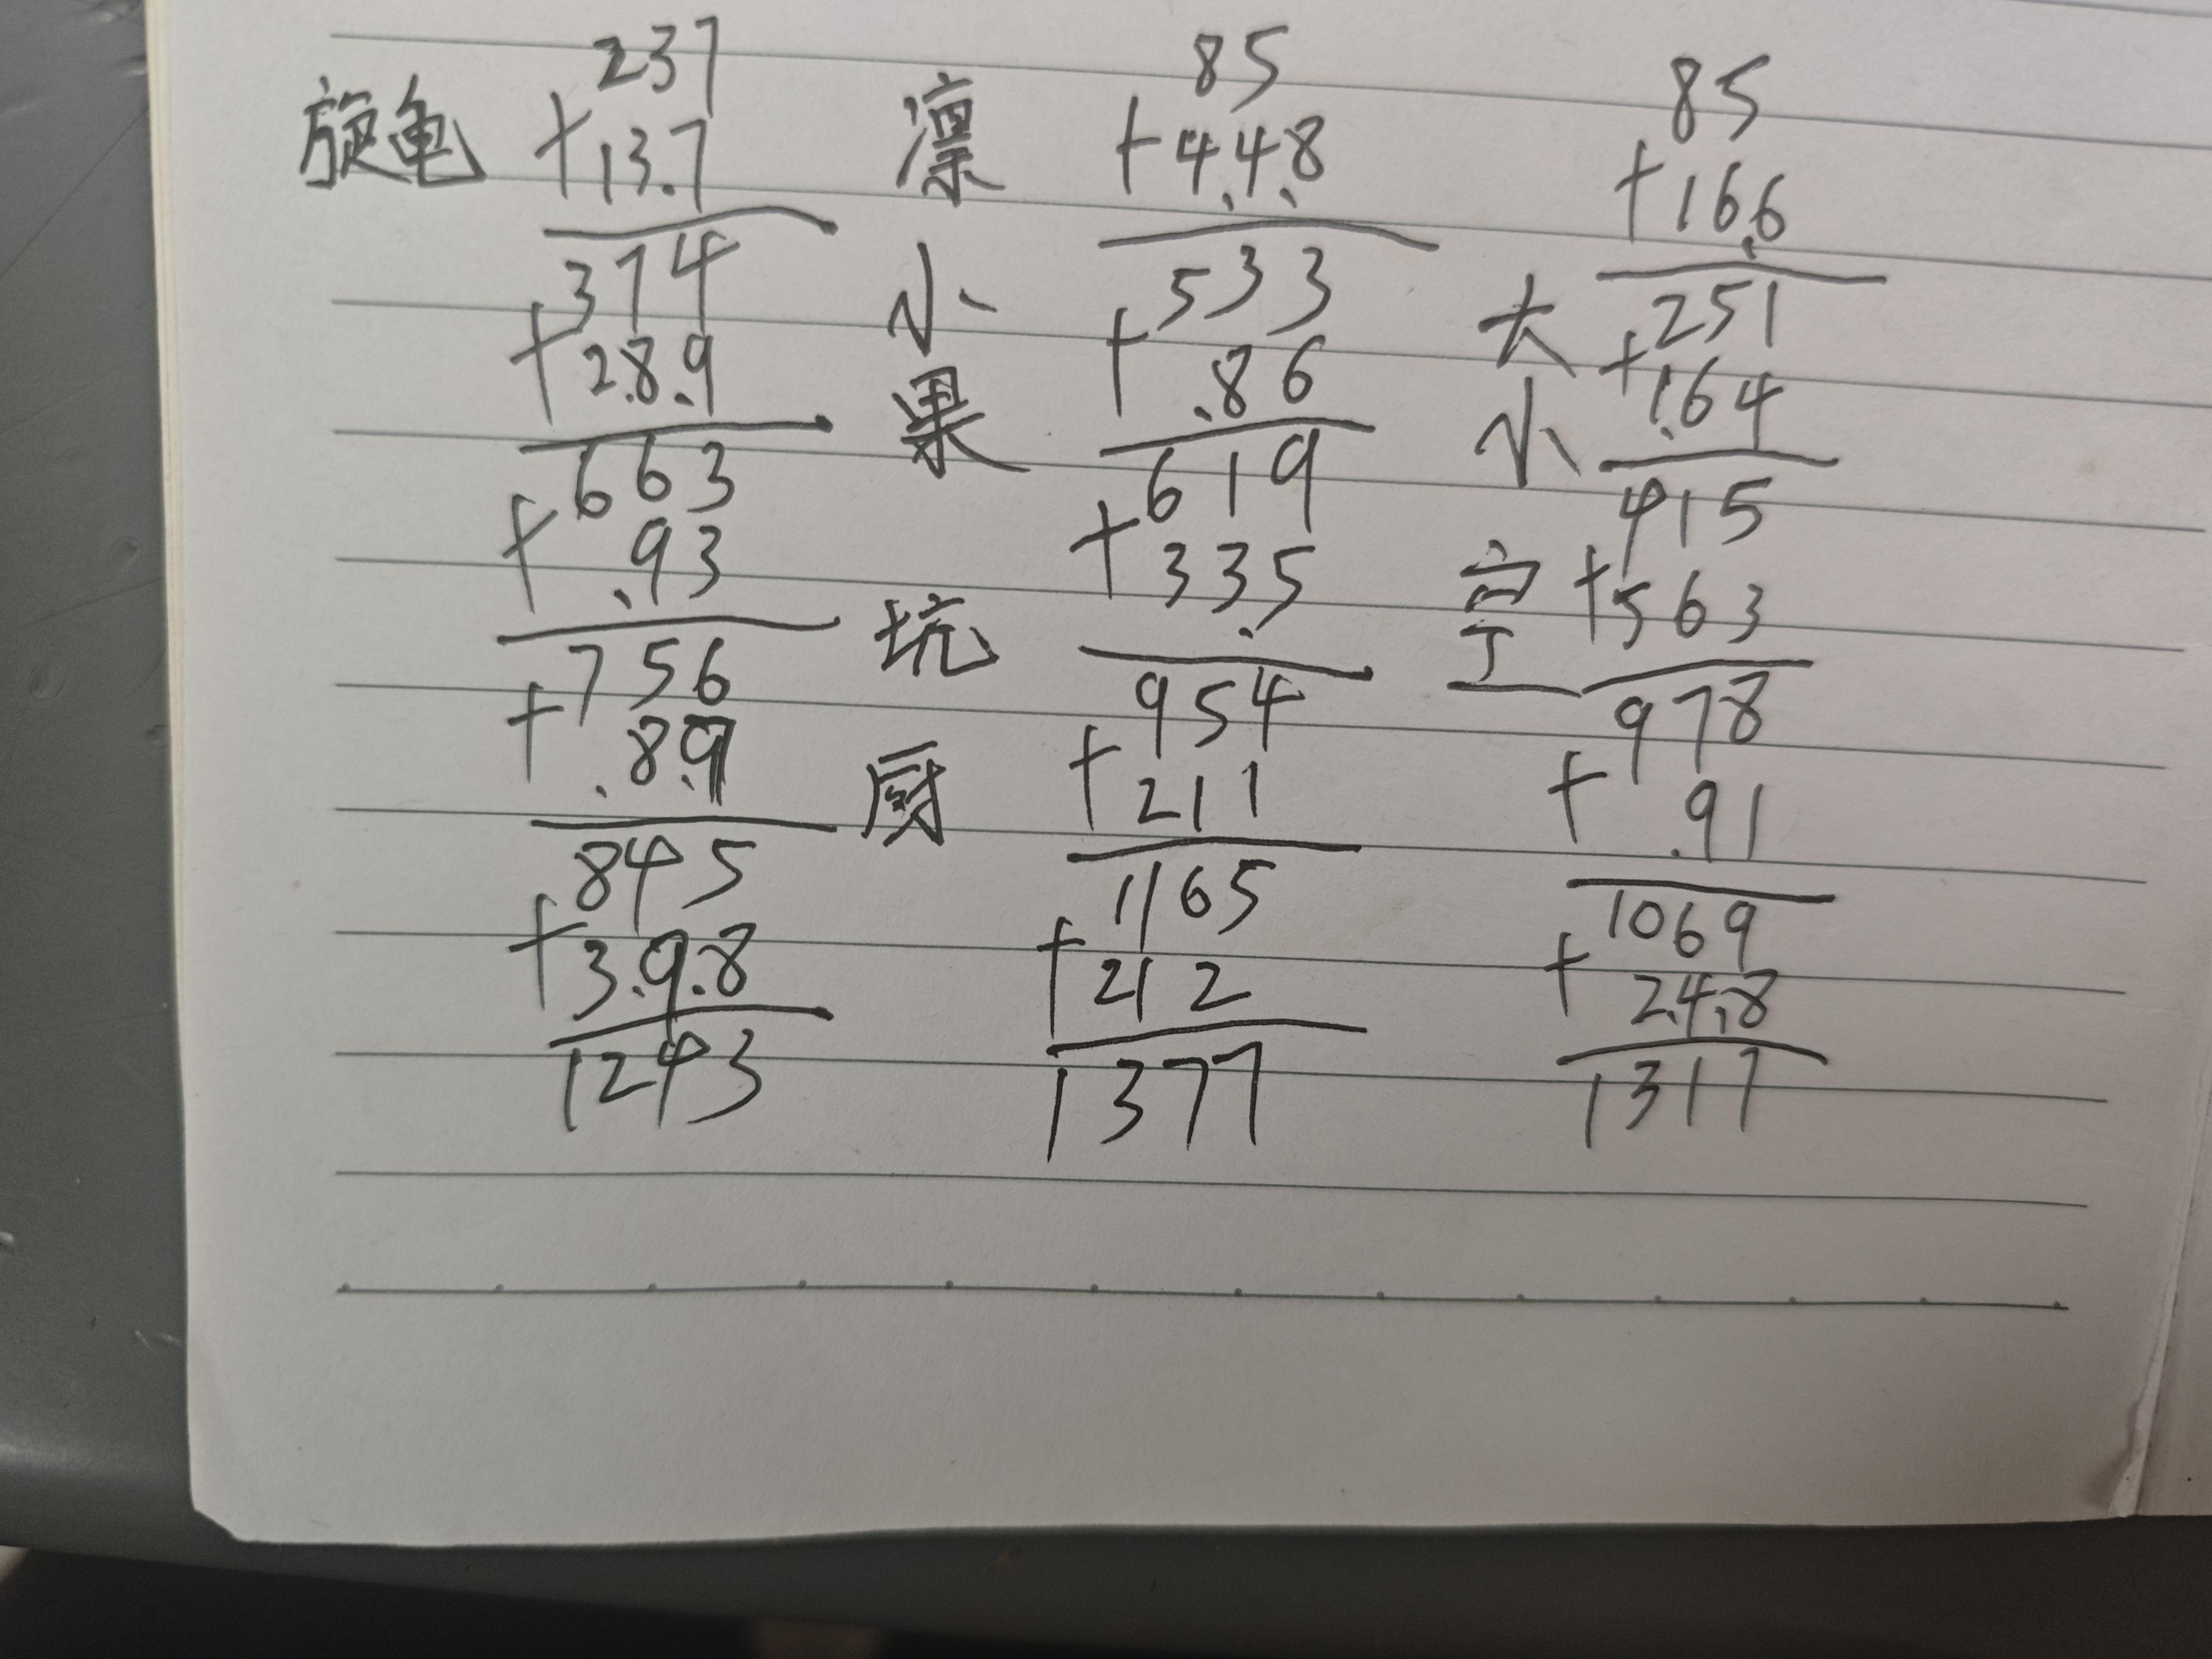 旋龟
237
+137
374
+289
663
+93
756
+89
845
+398
1243
凛
小
果
坑
厨
85
+448
533
+86
619
+335
954
+211
1165
+212
1377
大
小
空
85
+166
251
+164
415
+563
978
+91
1069
+248
1317